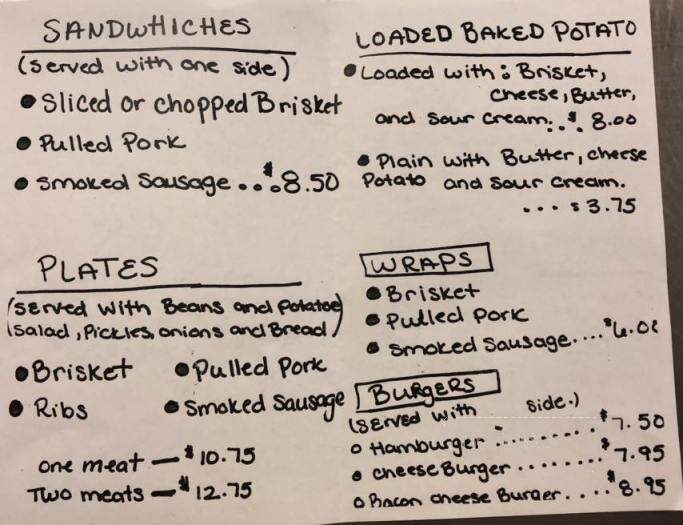 SANDWHICHES
(served with one side)
• Sliced or chopped Brisket
• Pulled Pork
• Smoked Sausage ... $8.50
LOADED BAKED POTATO
• Loaded with: Brisket,
cheese, Butter,
and Sour cream... $8.00
• Plain with Butter, cheese
Potato and Sour cream.
... $3.75
PLATES
(served with Beans and Potatoe
Salad, Pickles, onions and Bread)
• Brisket • Pulled Pork
• Ribs • Smoked Sausage
one meat — $10.75
Two meats — $12.75
WRAPS
• Brisket
• Pulled Pork
• Smoked Sausage....
BURGERS
(served with side.)
• Hamburger .......... $7.50
• cheeseBurger ........ $7.95
• Bacon cheese Burger.... $8.95